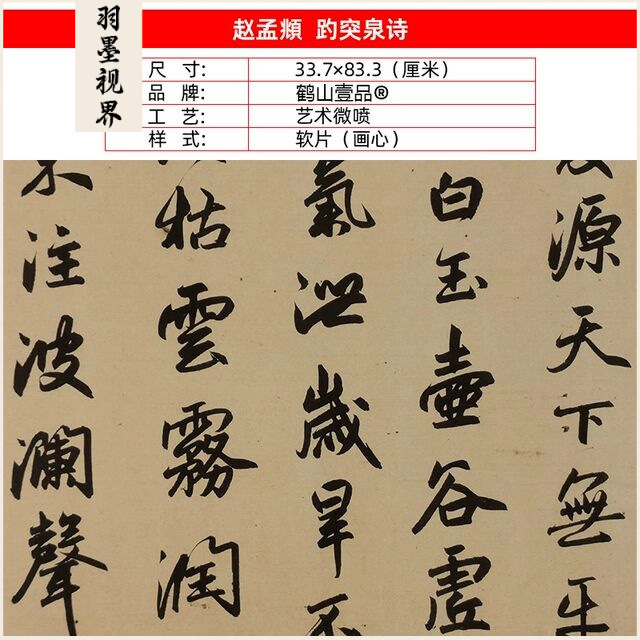 羽墨视界
赵孟頫 趵突泉诗
尺 寸: 33.7×83.3(厘米)
品 牌: 鹤山壹品®
工 艺: 艺术微喷
样 式: 软片(画心)
源天下無平
白玉壺谷虛
氣泄歲旱不
枯雲霧潤
不注波瀾聲